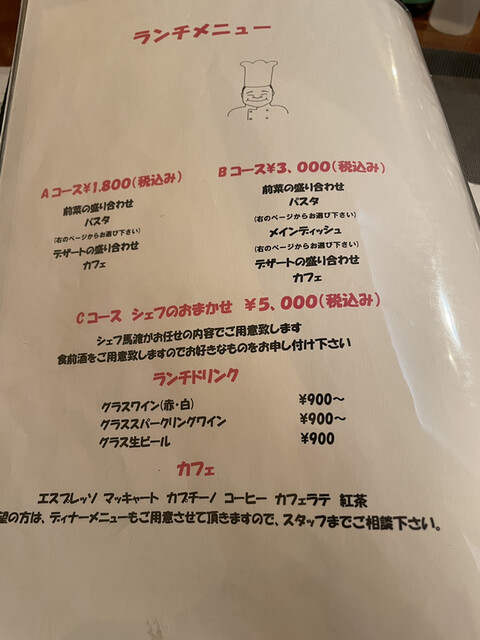 ランチメニュー
Aコース¥1,800(税込み)
前菜の盛り合わせ
パスタ
(右のページからお選び下さい)
デザートの盛り合わせ
カフェ
Bコース¥3,000(税込み)
前菜の盛り合わせ
パスタ
(右のページからお選び下さい)
メインディッシュ
(右のページからお選び下さい)
デザートの盛り合わせ
カフェ
Cコース シェフのおまかせ ¥5,000(税込み)
シェフ馬渡がお任せの内容でご用意致します
食前酒をご用意致しますのでお好きなものをお申し付け下さい
ランチドリンク
グラスワイン(赤・白) ¥900〜
グラススパークリングワイン ¥900〜
グラス生ビール ¥900
カフェ
エスプレッソ マッキャート カプチーノ コーヒー カフェラテ 紅茶
望の方は、ディナーメニューもご用意させて頂きますので、スタッフまでご相談下さい。